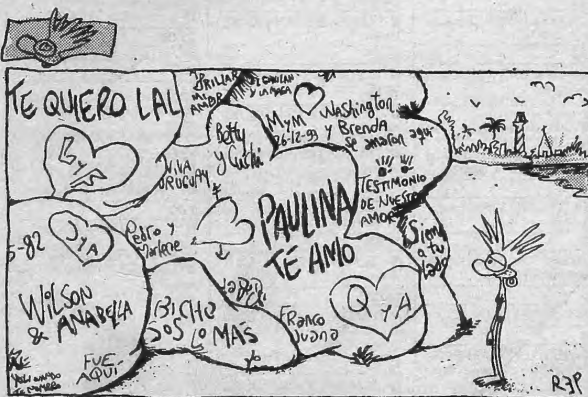 TE QUIERO LAL
BRILLAR
MI
AMOR
Y LA MAGA
MyM
26-12-93
Washington
y Brenda
se amaron aquí
Betty
y Cuchi
VIVA
URUGUAY
TESTIMONIO
DE NUESTRO
AMOR
PAULINA
TE AMO
Pedro y
Marlene
a tu
lado
5-82
J y A
WILSON
& ANABELLA
FUE
AQUÍ
BICHO
SOS LO MAS
Franco
Juana
Q y A
yo
REP